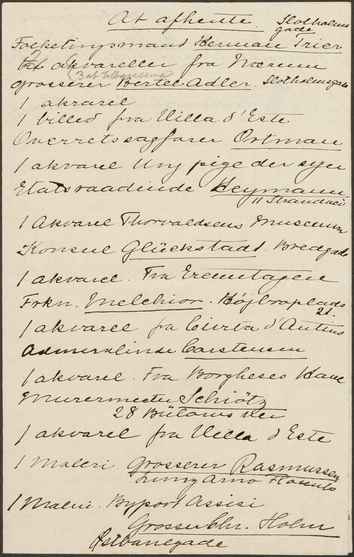 At afhente. Slotholms
gade.
Folketingsmand Herman Trier
akvareller fra Næsum
grosserer Bertel Adler. Slotholmsgade
1 akvarel
1 billed fra Villa d'Este
Overretssagfører Ortman
1 akvarel Ung pige der syer
Etatsraadinde Heymann
11 Strandvei
1 Akvarel Thorvaldsens Museum
Konsul Glückstadt Bredgade
1 akvarel. Fra Eremitagen
Frkn. Melchior. Højbroplads
21.
1 akvarel fra Civita d'Antino
Admiralinde Carstensen
1 akvarel. Fra Borgheses Have
Murermester Schiøtz
28 Bülowsvei
1 akvarel fra Villa d'Este
1 Maleri grosserer Rasmussen
Lung Arno
1 Maleri. Byport Assisi
Grosserer Chr. Holm
Østbanegade